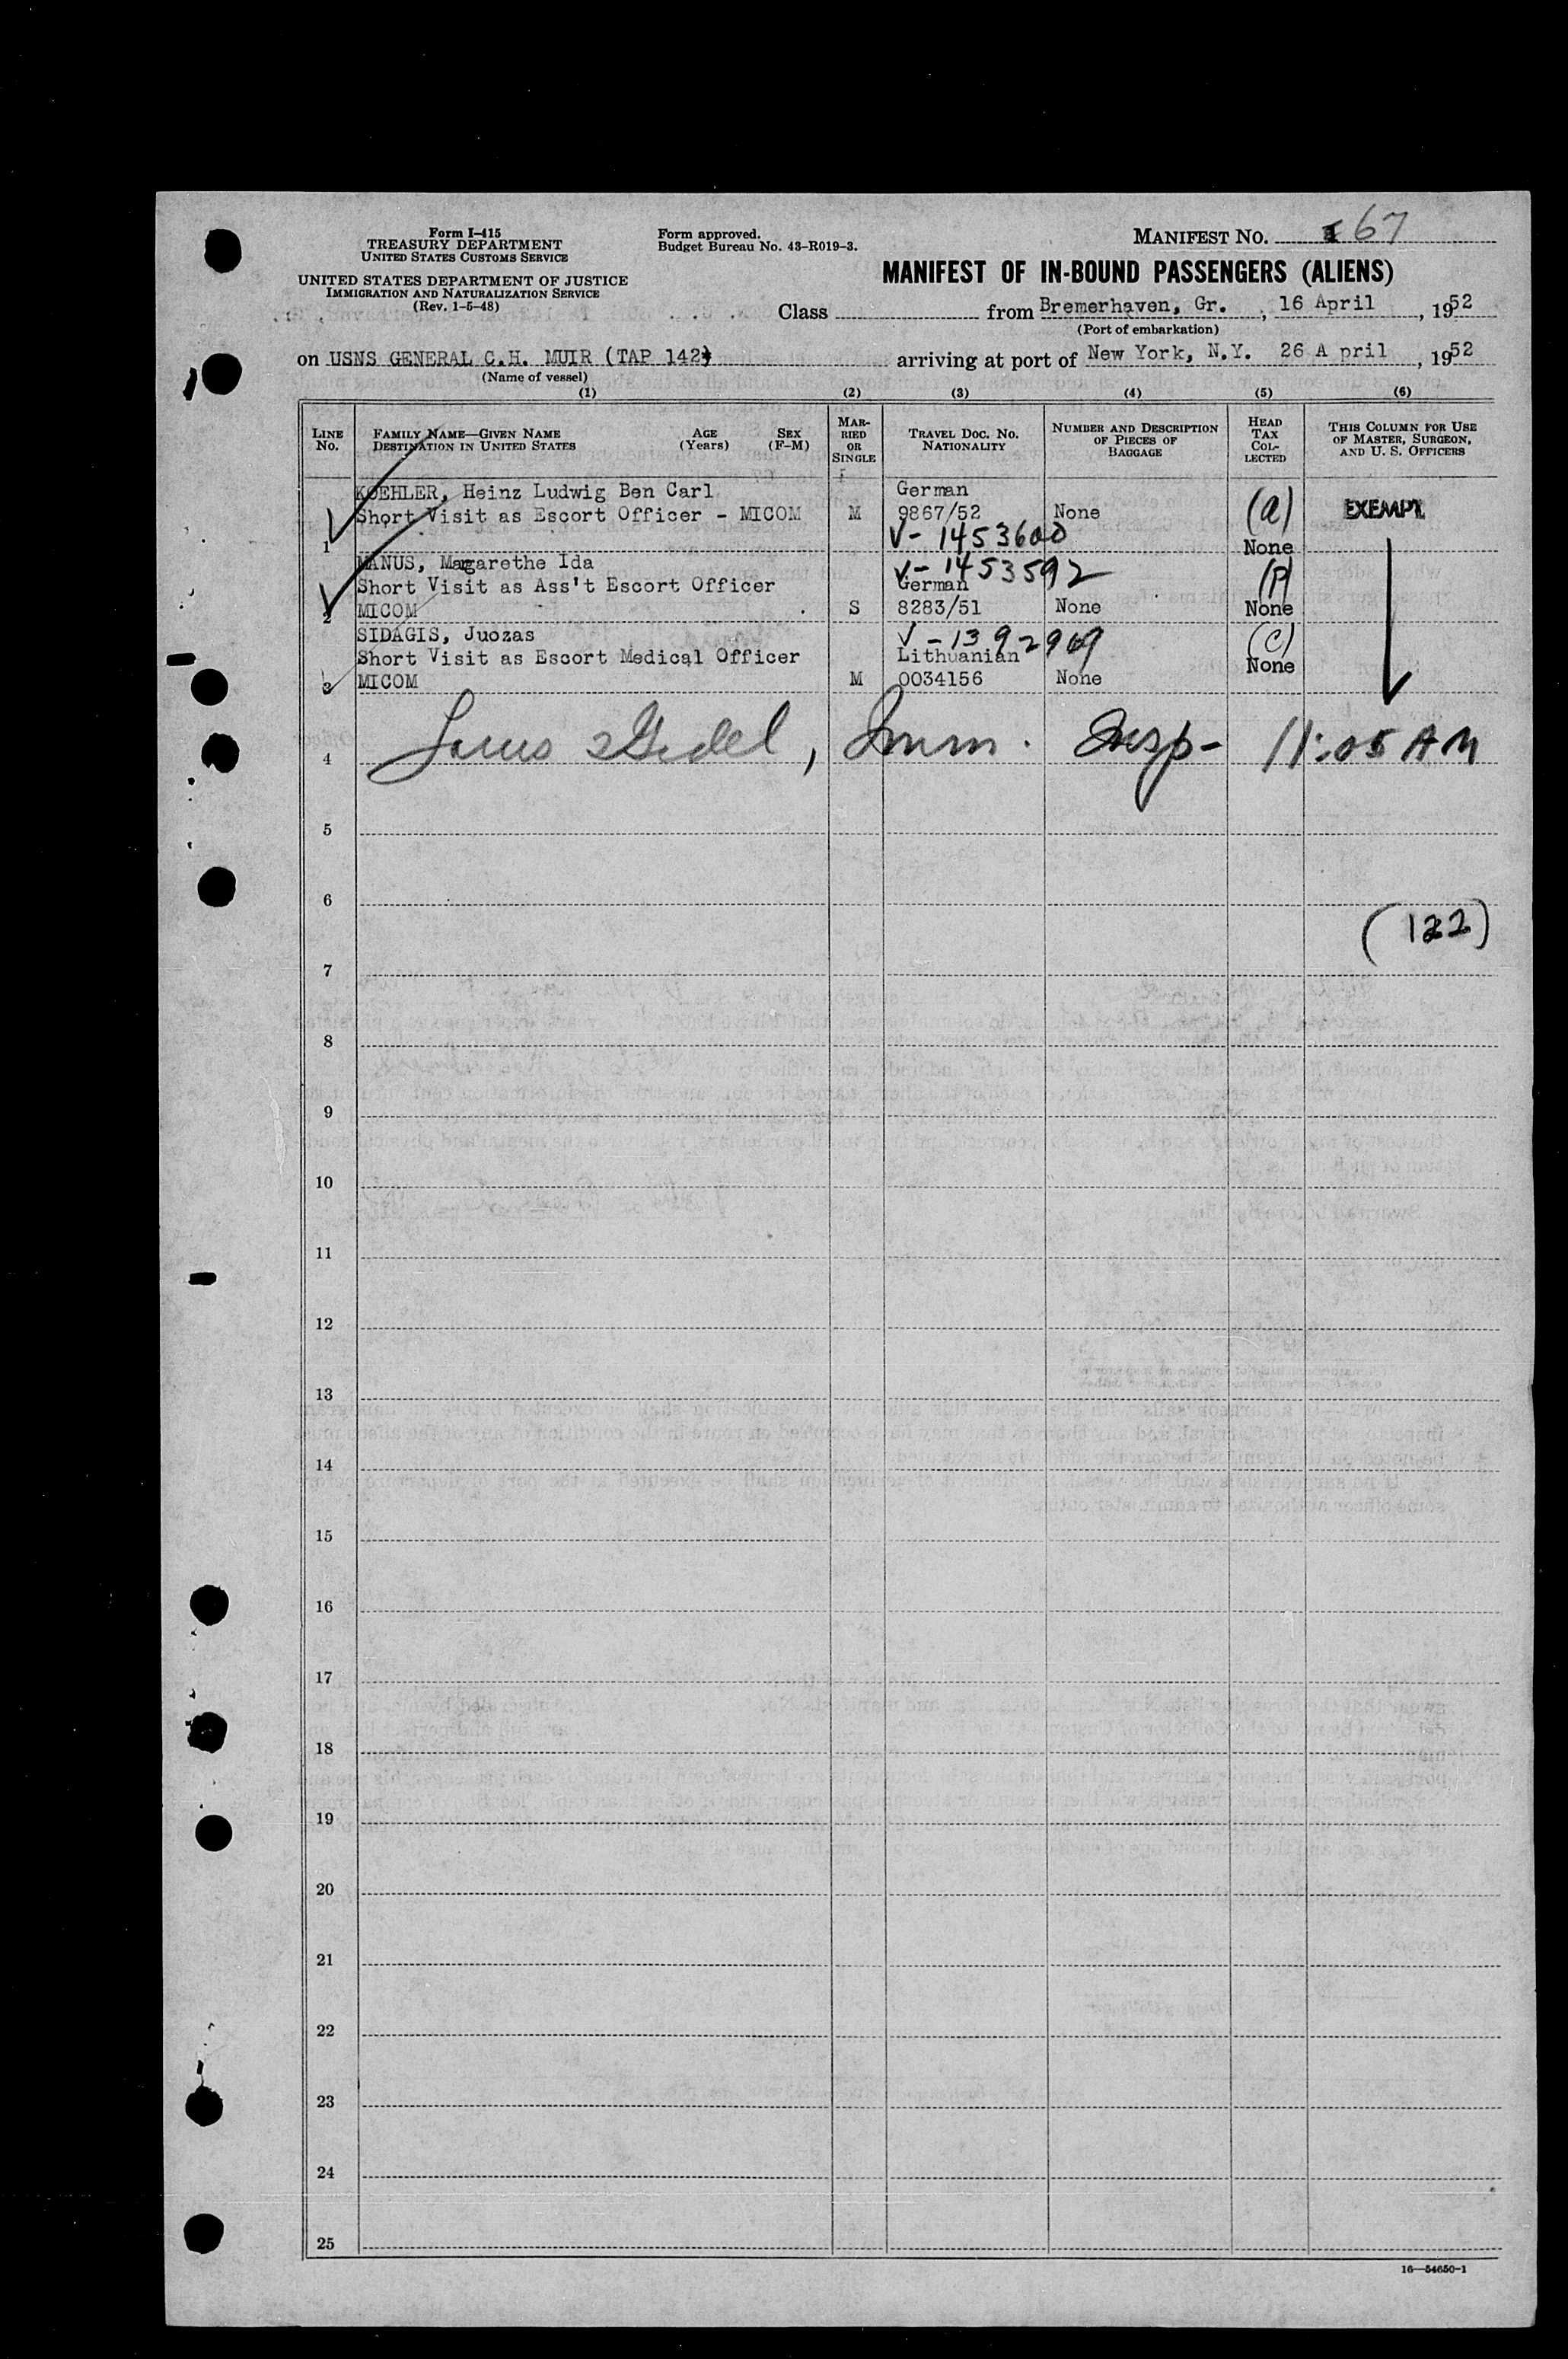 Form I-415
TREASURY DEPARTMENT
UNITED STATES CUSTOMS SERVICE
UNITED STATES DEPARTMENT OF JUSTICE
IMMIGRATION AND NATURALIZATION SERVICE
(Rev. 1-5-48)
Form approved.
Budget Bureau No. 43-R019-3.
MANIFEST NO. 67
MANIFEST OF IN-BOUND PASSENGERS (ALIENS)
Class from Bremerhaven, Gr., 16 April, 1952
(Port of embarkation)
on USNS GENERAL C.H. MUIR (TAP 142) arriving at port of New York, N.Y. 26 A pril, 1952
(Name of vessel)
(1) (2) (3) (4) (5) (6)
LINE NO.
FAMILY NAME—GIVEN NAME
DESTINATION IN UNITED STATES
AGE (Years)
SEX (F-M)
MARRIED OR SINGLE
TRAVEL DOC. NO.
NATIONALITY
NUMBER AND DESCRIPTION OF PIECES OF BAGGAGE
HEAD TAX COLLECTED
THIS COLUMN FOR USE OF MASTER, SURGEON, AND U. S. OFFICERS
KOEHLER, Heinz Ludwig Ben Carl German
Short Visit as Escort Officer - MICOM M 9867/52 None (a) EXEMPT
1 V- 1453600 None
MANUS, Magarethe Ida V- 1453592
Short Visit as Ass't Escort Officer German (P)
2 MICOM S 8283/51 None None
SIDAGIS, Juozas V-1392969 (C)
Short Visit as Escort Medical Officer Lithuanian None
3 MICOM M 0034156 None
4 Imm. Insp- 11:05 AM
5
6
(122)
7
8
9
10
11
12
13
14
15
16
17
18
19
20
21
22
23
24
25
16—54650-1